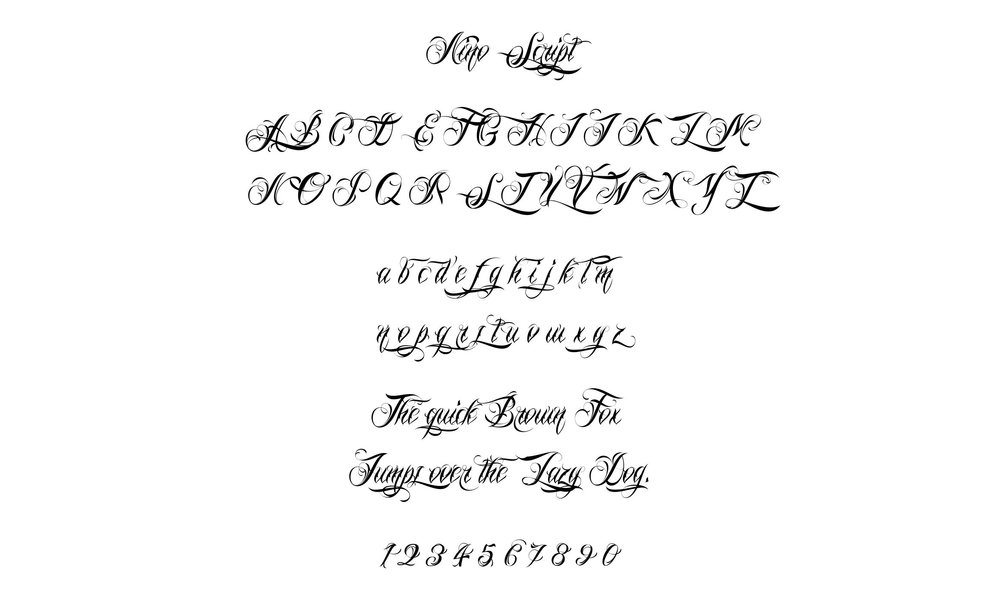 Nino Script
A B C D E F G H I J K L M
N O P Q R S T U V W X Y Z
a b c d e f g h i j k l m
n o p q r s t u v w x y z
The quick Brown Fox
Jumps over the Lazy Dog.
1 2 3 4 5 6 7 8 9 0